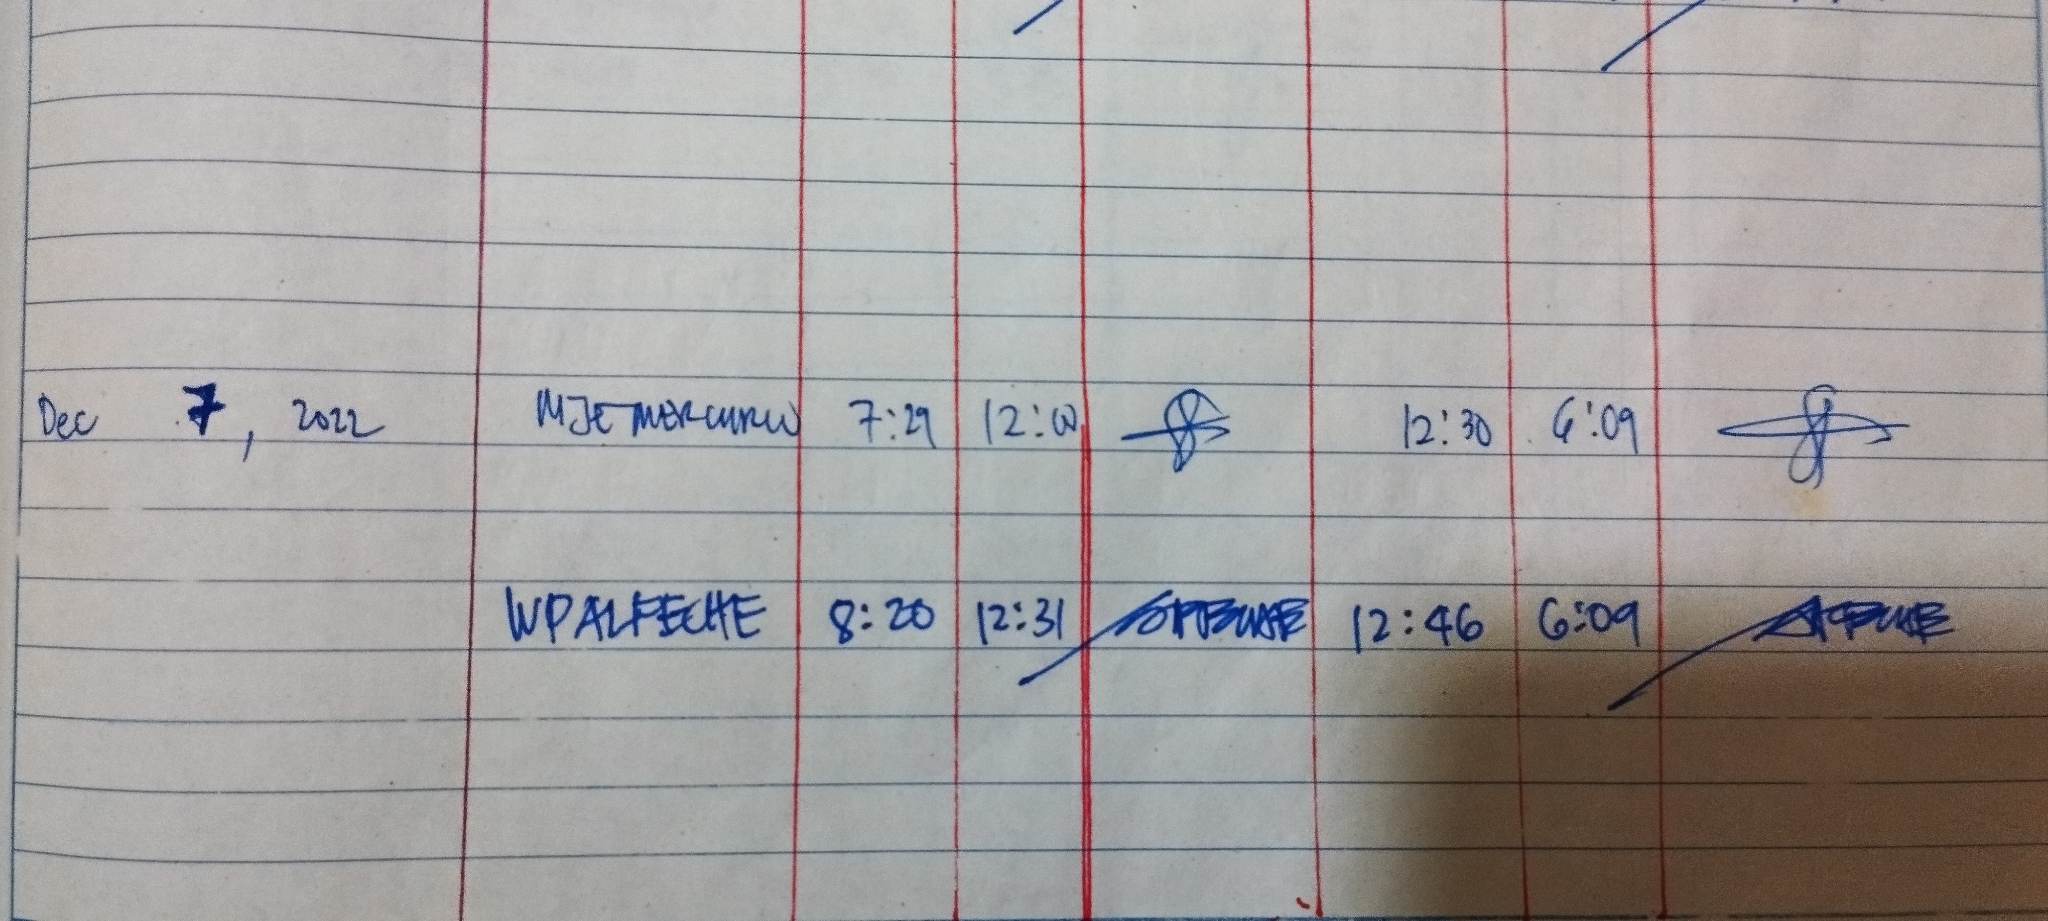 Dec 7, 2022 MJEMERCURIO 7:29 12:00 12:30 6:09
WPALFECHE 8:20 12:31 12:46 6:09